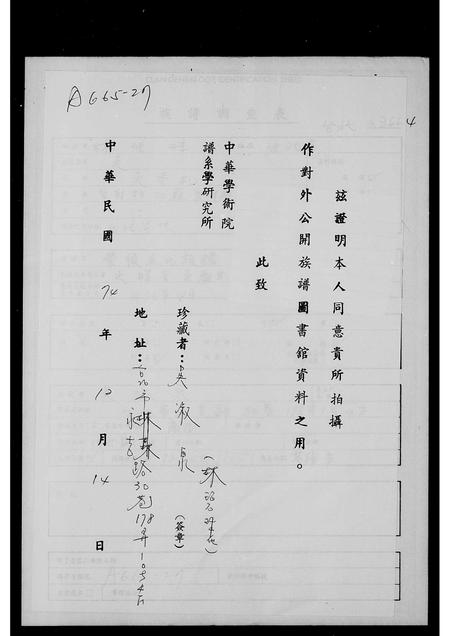 A665-27
4
茲證明本人同意貴所拍攝
作對外公開族譜圖書館資料之用。
此致
中華學術院
譜系學研究所
珍藏者：吳淑
（簽章）
地址：台北市永吉路30巷178弄10號4F
中華民國74年12月14日